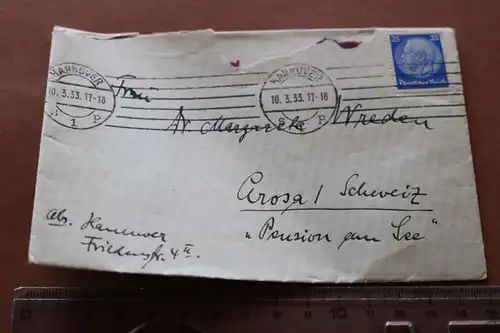 HANNOVER
10.3.33.17-18
1 p
HANNOVER
10.3.33.17-18
p
25 25
Deutsches Reich
Frau
Dr. Margarete Wreden
Arosa / Schweiz
"Pension am See"
Abs. Hannover
Friedenstr. 4 II.
1 2 3 4 5 6 7 8 9 10 11 12 13